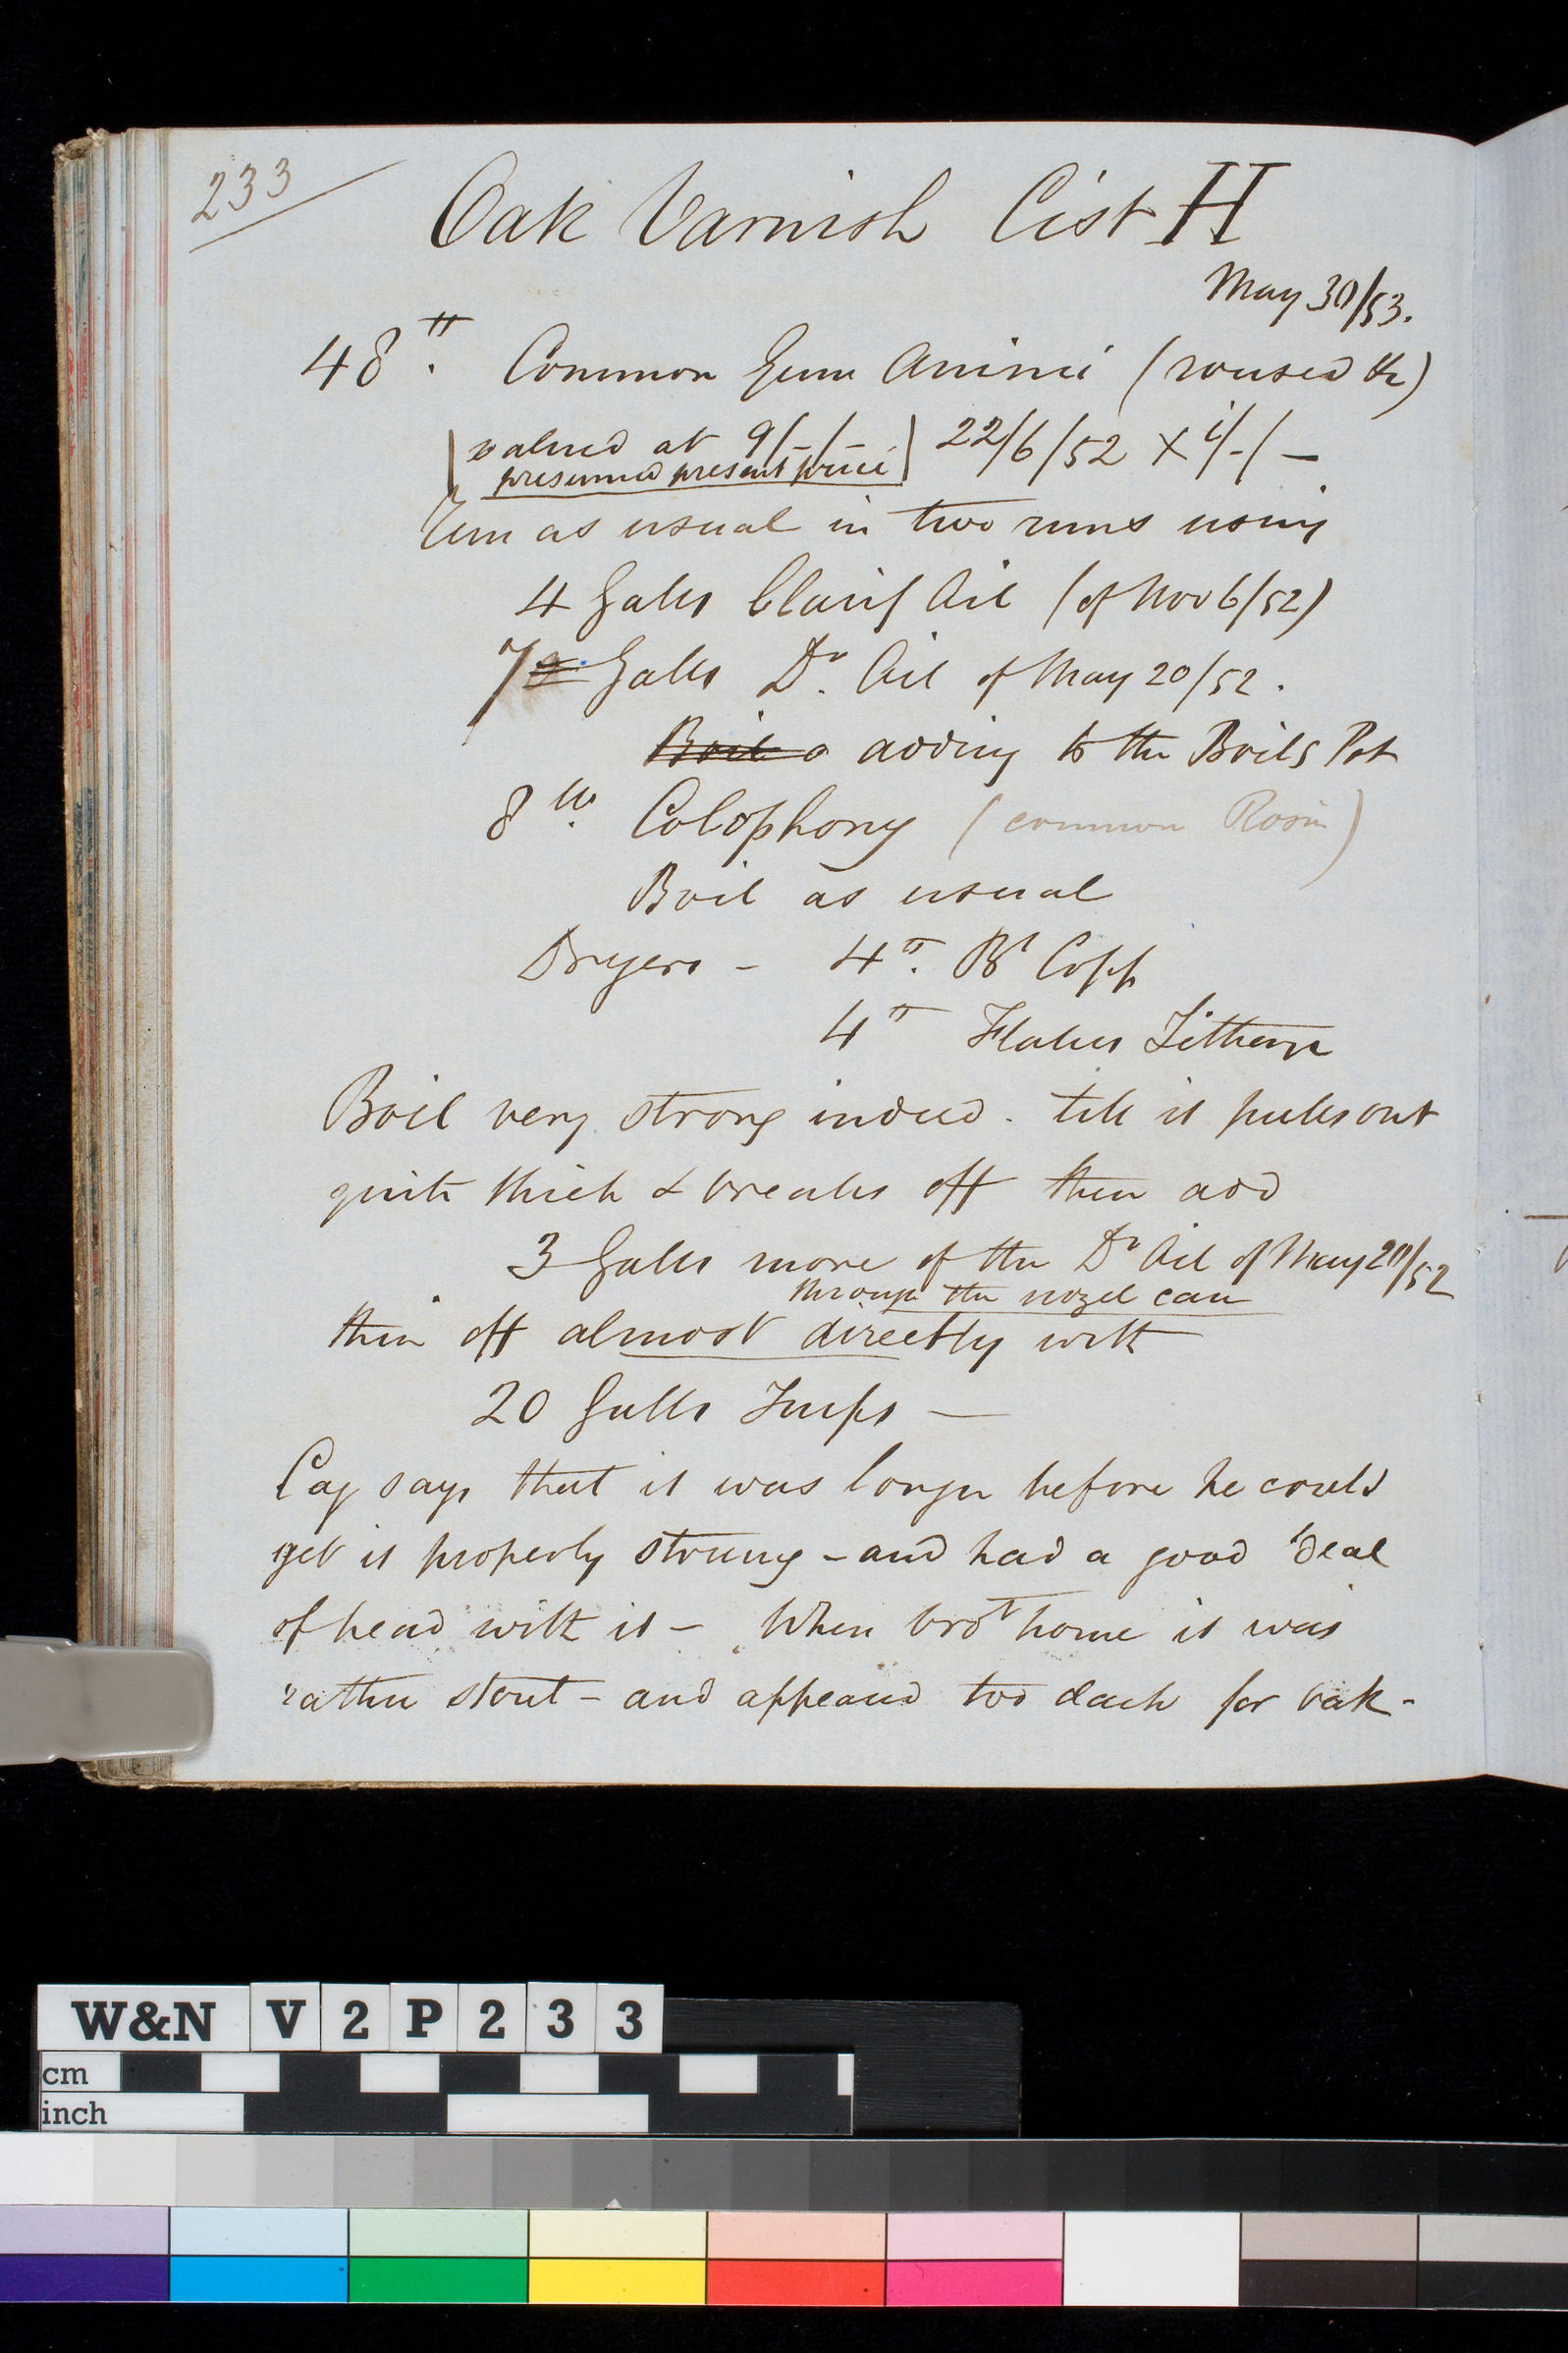 233
Oak Varnish Cist H
May 30/53.
48 lb. Common Gum Animi (roused &c)
(valued at 9/-/-) 22/6/52 X i/-/-
presumed present price
Run as usual in two runs using
4 Galls Clarif Oil (of Nov 6/52)
7 Galls Dr. Oil of May 20/52.
Boil a adding to the Boils Pot
8 lbs. Colophony (common Rosin)
Boil as usual
Dryers - 4 lb. Bt Copp
4 lb Flakes Litharge
Boil very strong indeed. till it pulls out
quite thick & breaks off then add
3 Galls more of the Dr Oil of May 20/52
through the nozel can
thin off almost directly with
20 Galls Turps —
Cag says that it was longer before he could
get it properly strung - and had a good deal
of head with it - When brot home it was
rather stout - and appeared too dark for oak -
W&N V2P233
cm
inch